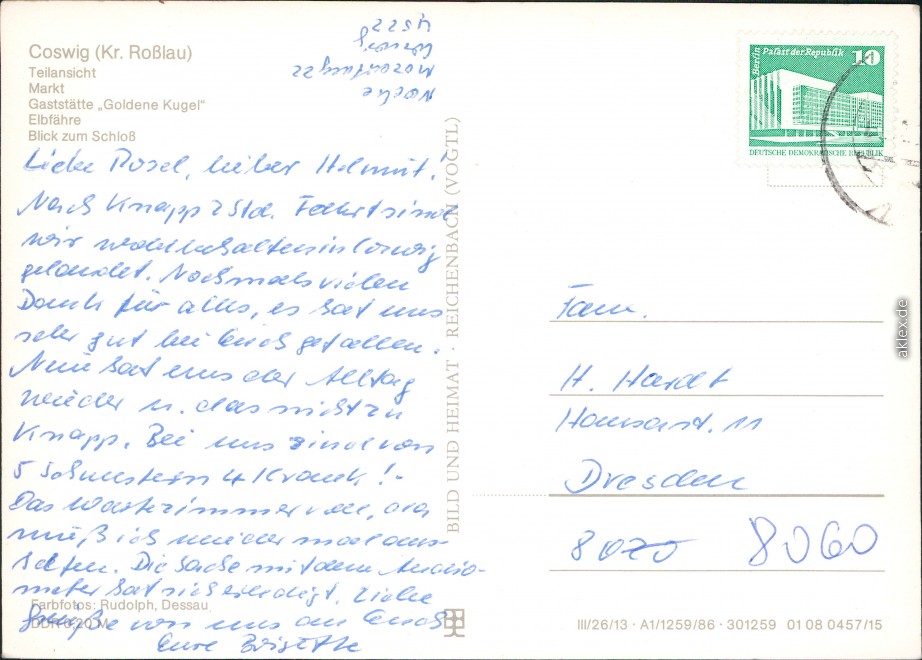 Coswig (Kr. Roßlau)
Teilansicht
Markt
Gaststätte „Goldene Kugel"
Elbfähre
Blick zum Schloß
Noske
22
Coswig
4522
Liebe Rosel, lieber Helmut!
Nach knapp 2 Std. Fahrt sind
wir wohlbehalten in Coswig
gelandet. Nochmals vielen
Dank für alles, es hat uns
sehr gut bei Euch gefallen.
Nun hat uns der Alltag
wieder u. das nicht zu
knapp. Bei uns sind von
5 Schwestern 4 krank! -
Das Wartezimmer voll, da
muß ich wieder mal aus-
helfen. Die Sache mit dem
hat sich erledigt. Liebe
Grüße von uns an Euch
Eure Brigitte
Farbfotos: Rudolph, Dessau
DDR 0,20 M
BILD UND HEIMAT · REICHENBACH (VOGTL)
Berlin Palast der Republik 10
DEUTSCHE DEMOKRATISCHE REPUBLIK
Fam.
H. Hardt
Hansastr. 11
Dresden
8020 8060
III/26/13 · A1/1259/86 · 301259 01 08 0457/15
aklex.de